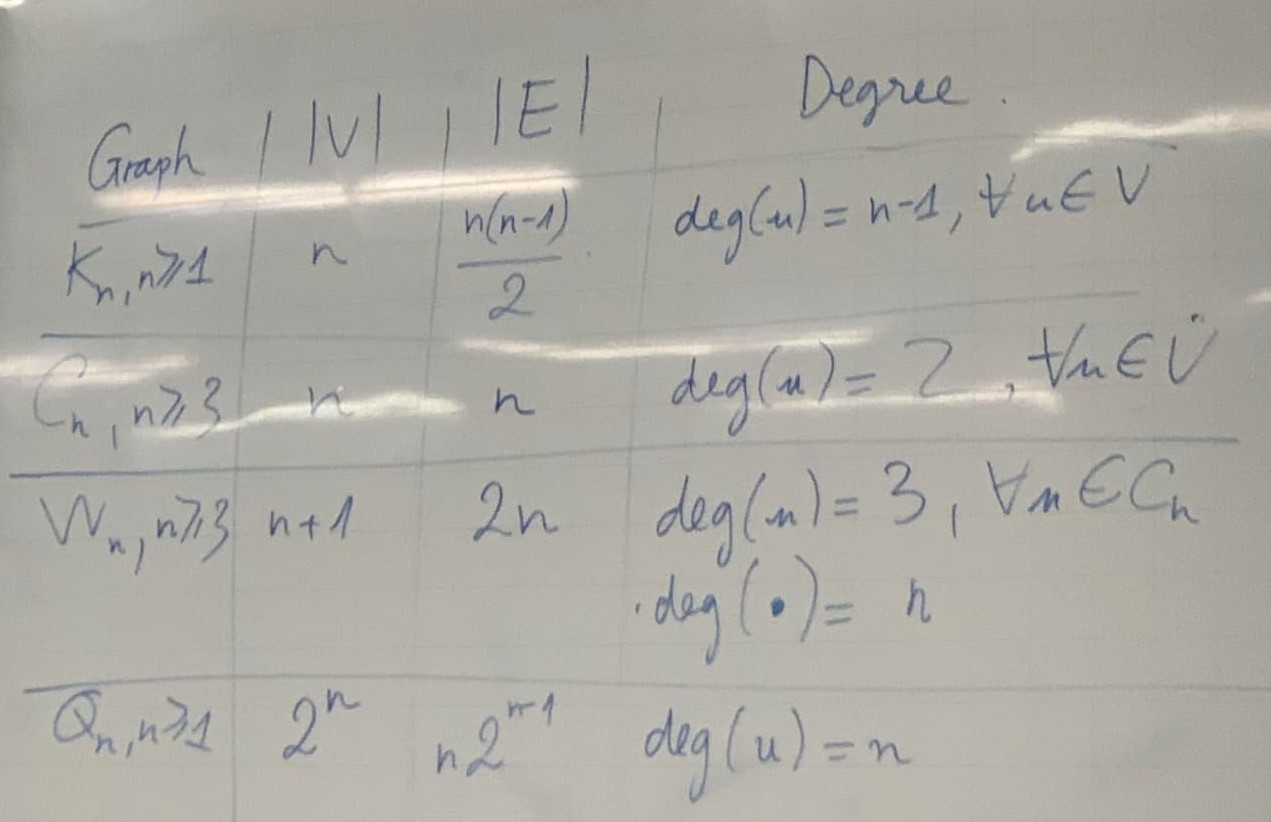 Graph | |V| | |E| | Degree.
Kₙ, n⩾1 n n(n-1)/2 deg(u) = n-1, ∀u∈V
Cₙ, n⩾3 n n deg(u) = 2, ∀u∈V
Wₙ, n⩾3 n+1 2n deg(u) = 3, ∀u∈Cₙ
deg(•) = n
Qₙ, n⩾1 2ⁿ n2ⁿ⁻¹ deg(u) = n